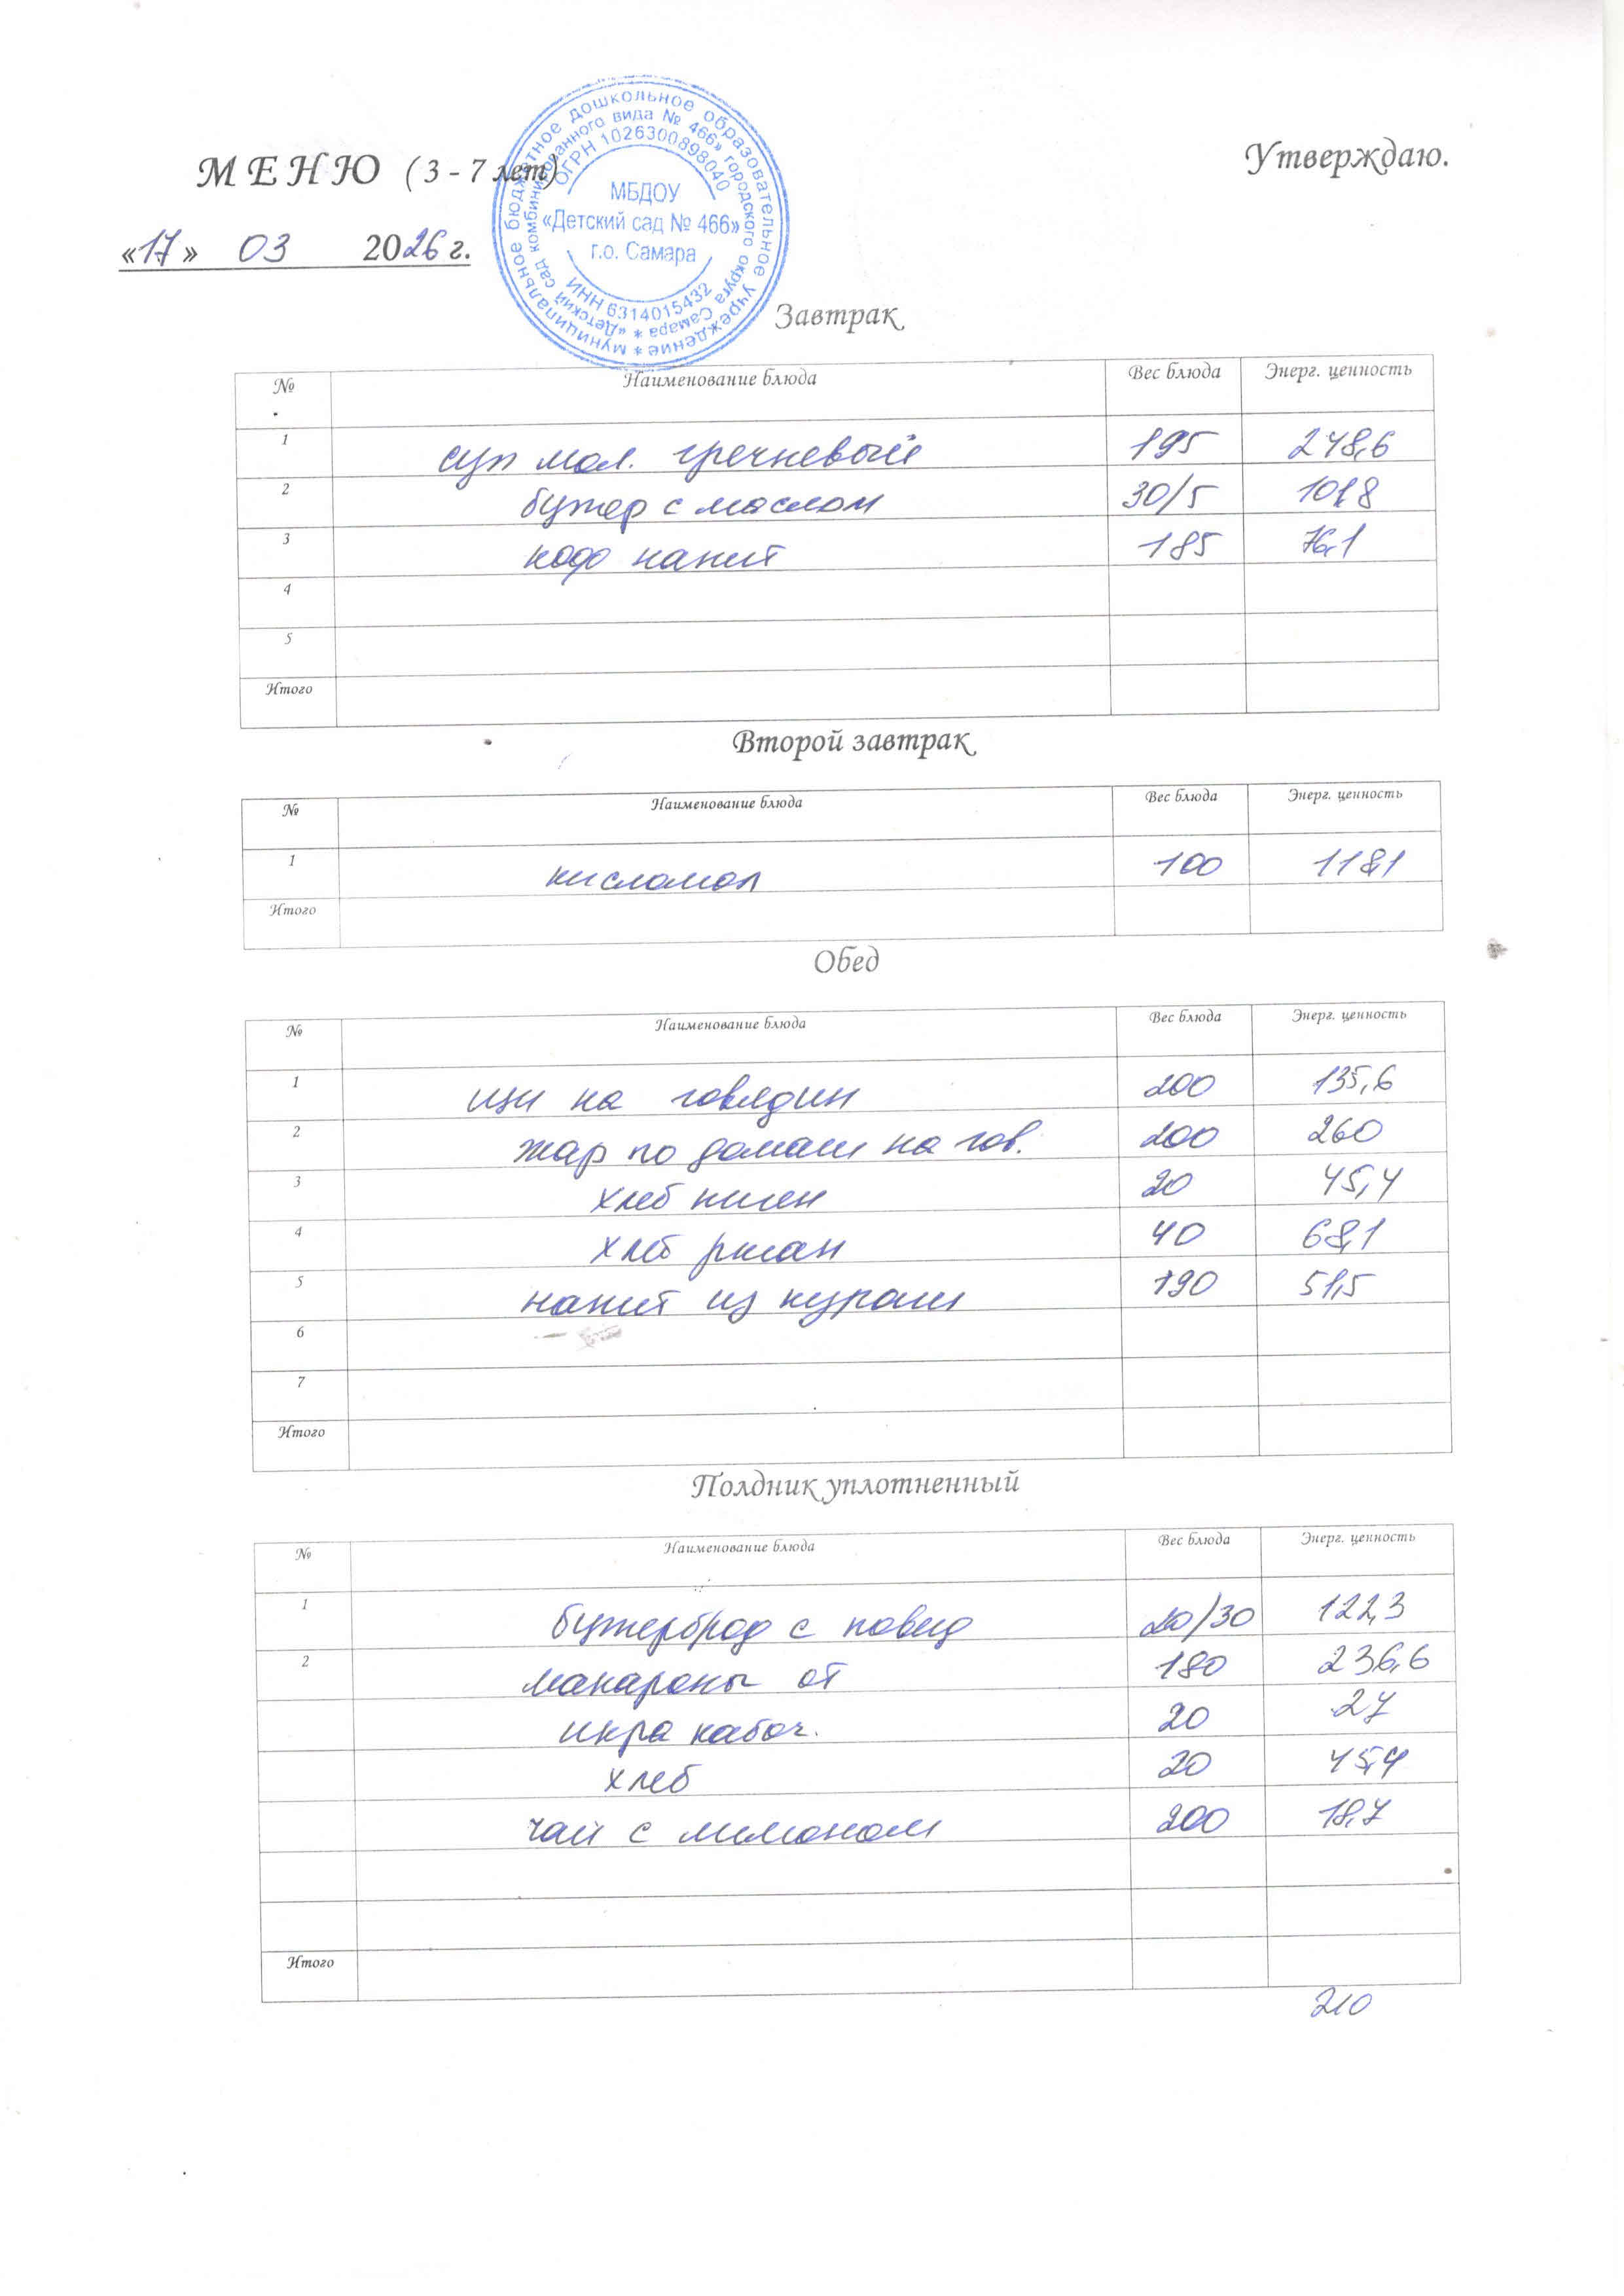 Утверждаю.
М Е Н Ю ( 3 - 7 лет)
«17» 03 2026 г.
муниципальное бюджетное дошкольное образовательное учреждение *
«Детский сад комбинированного вида № 466» городского округа Самара *
ОГРН 1026300898040
МБДОУ
«Детский сад № 466»
г.о. Самара
ИНН 6314015432
Завтрак
№ Наименование блюда Вес блюда Энерг. ценность
1 суп мол. гречневый 195 248,6
2 бутер с маслом 30/5 101,8
3 кофе напит 185 76,1
4
5
Итого
Второй завтрак
№ Наименование блюда Вес блюда Энерг. ценность
1 кисломол 100 118,1
Итого
Обед
№ Наименование блюда Вес блюда Энерг. ценность
1 щи на говядин 200 135,6
2 жар по домаш на гов. 200 260
3 хлеб пшен 20 45,4
4 хлеб ржан 40 68,1
5 напит из кураги 190 51,5
6
7
Итого
Полдник уплотненный
№ Наименование блюда Вес блюда Энерг. ценность
1 бутерброд с повид 20/30 122,3
2 макароны от 180 236,6
икра кабач. 20 27
хлеб 20 45,4
чай с лимоном 200 18,7
Итого
210